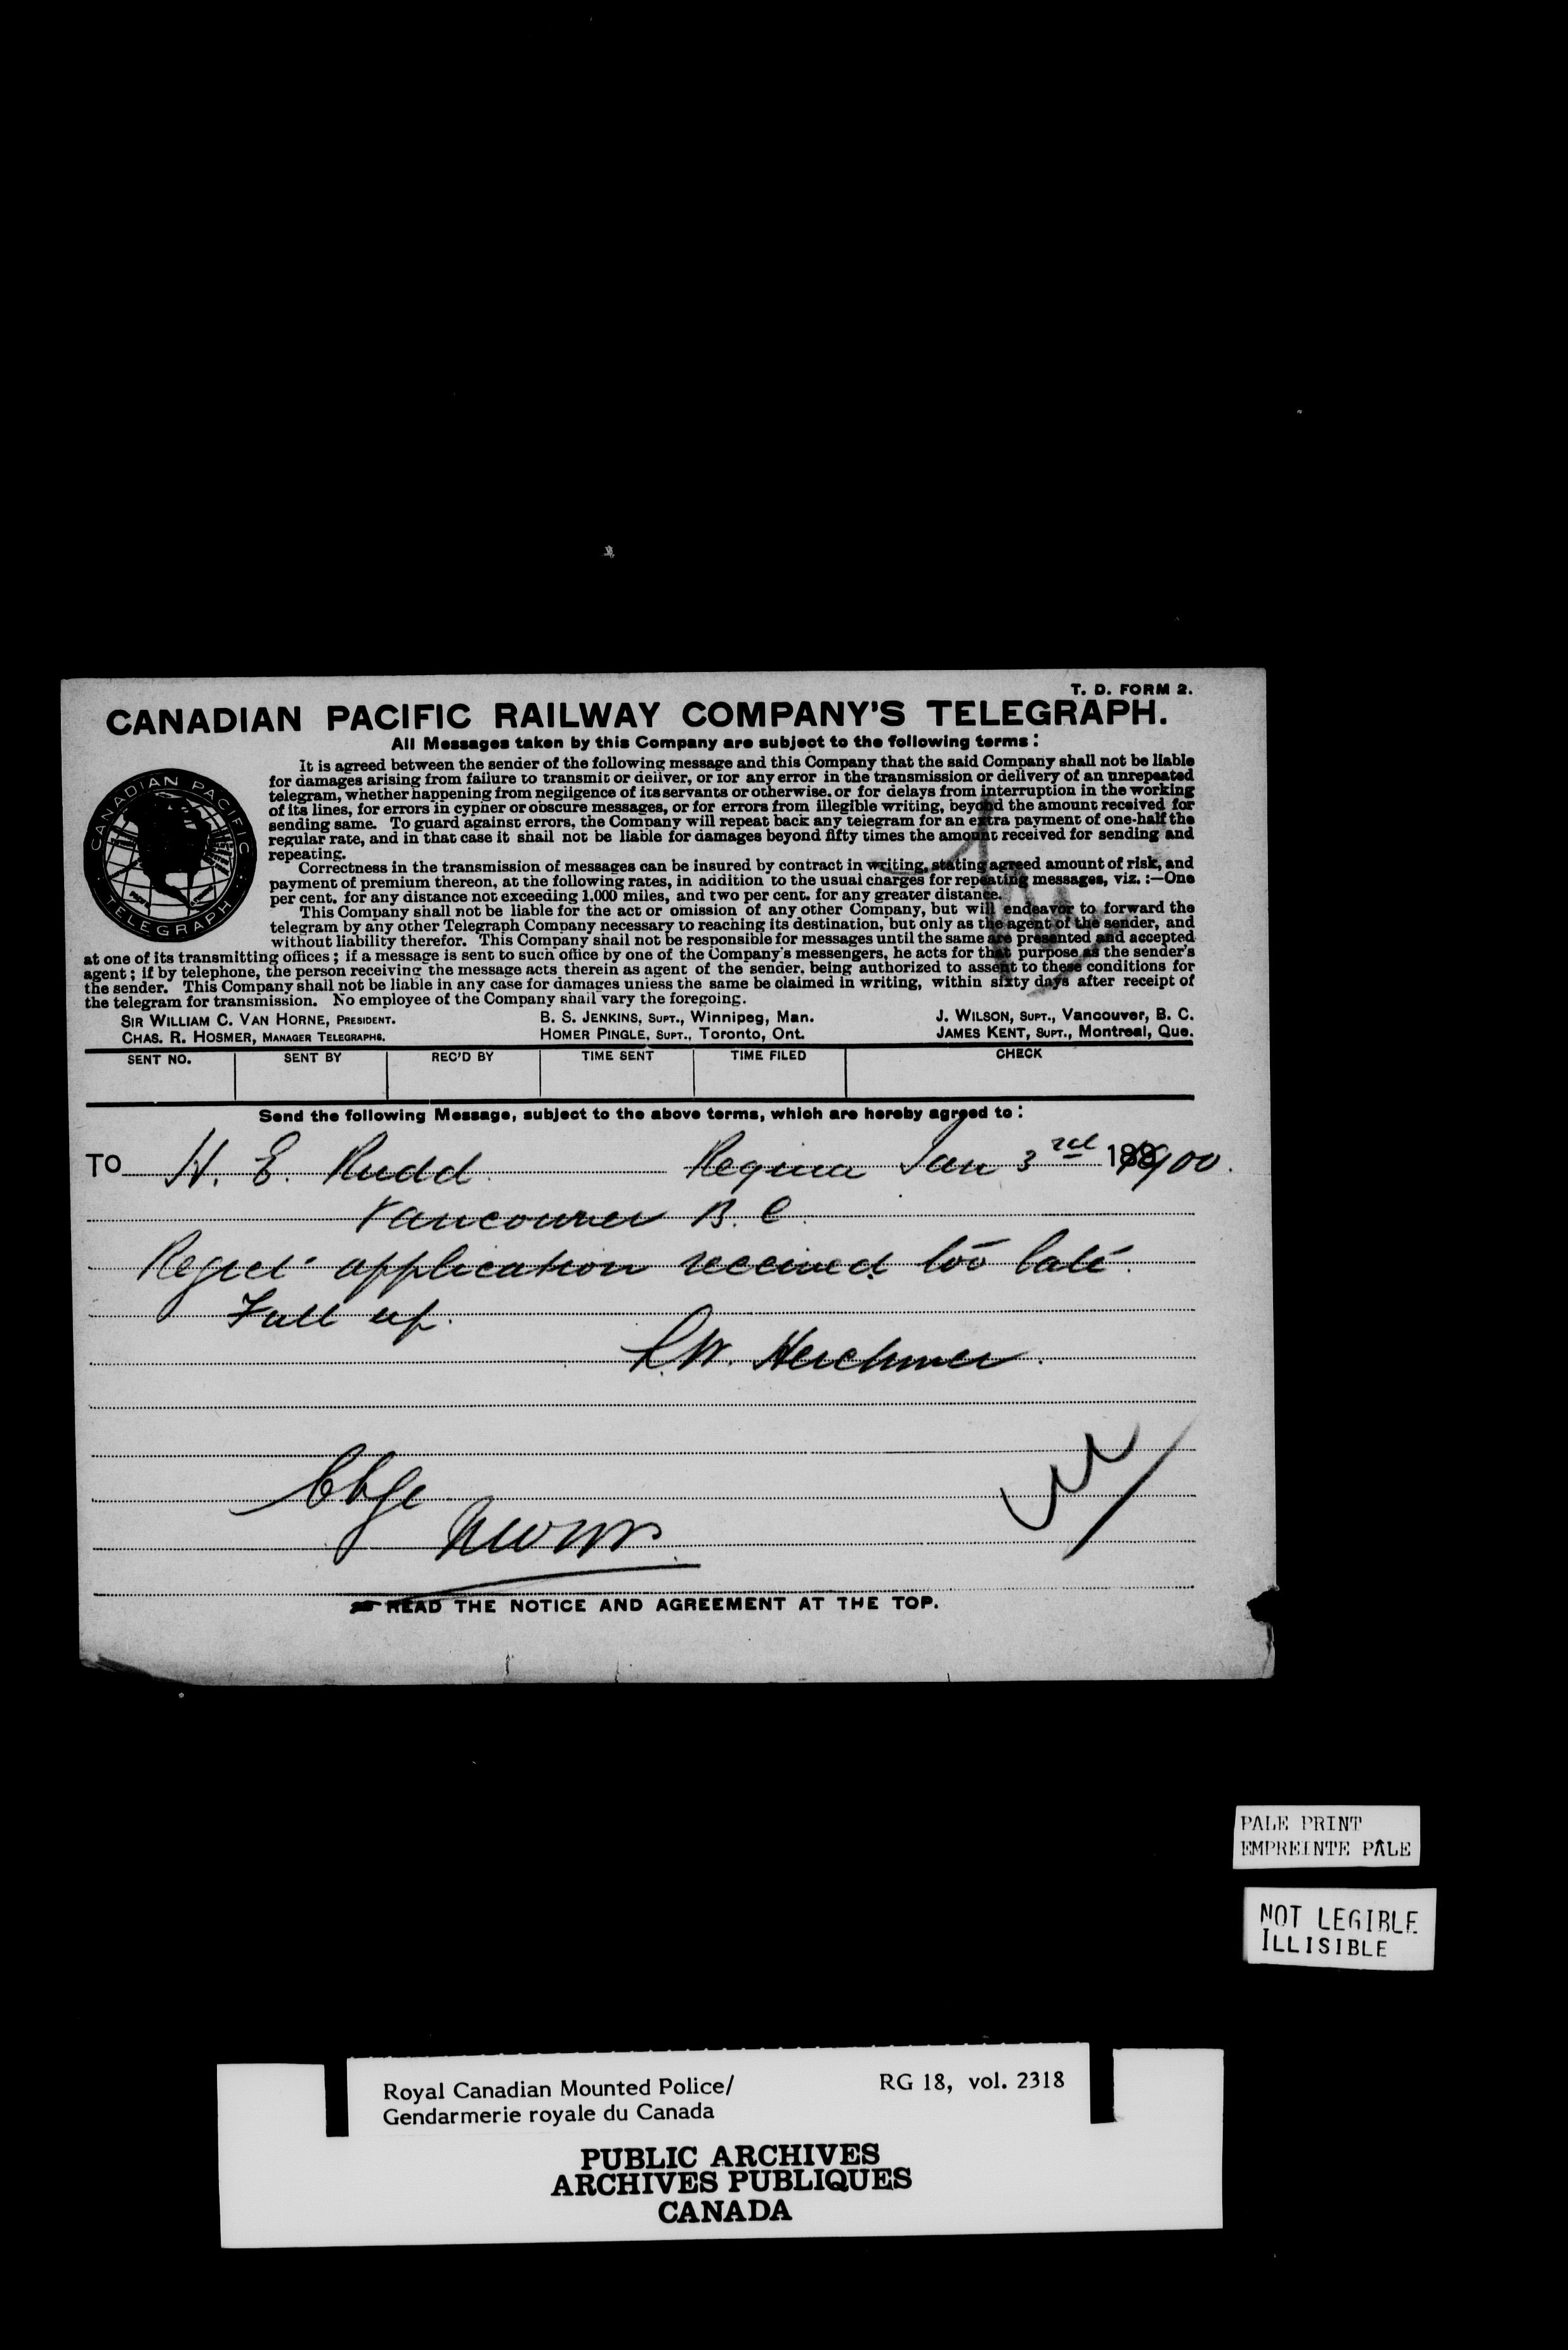 T. D. FORM 2.
CANADIAN PACIFIC RAILWAY COMPANY'S TELEGRAPH.
All Messages taken by this Company are subject to the following terms:
CANADIAN PACIFIC
TELEGRAPH
It is agreed between the sender of the following message and this Company that the said Company shall not be liable
for damages arising from failure to transmit or deliver, or for any error in the transmission or delivery of an unrepeated
telegram, whether happening from negligence of its servants or otherwise, or for delays from interruption in the working
of its lines, for errors in cypher or obscure messages, or for errors from illegible writing, beyond the amount received for
sending same. To guard against errors, the Company will repeat back any telegram for an extra payment of one-half the
regular rate, and in that case it shall not be liable for damages beyond fifty times the amount received for sending and
repeating.
Correctness in the transmission of messages can be insured by contract in writing, stating agreed amount of risk, and
payment of premium thereon, at the following rates, in addition to the usual charges for repeating messages, viz. :—One
per cent. for any distance not exceeding 1,000 miles, and two per cent. for any greater distance.
This Company shall not be liable for the act or omission of any other Company, but will endeavor to forward the
telegram by any other Telegraph Company necessary to reaching its destination, but only as the agent of the sender, and
without liability therefor. This Company shall not be responsible for messages until the same are presented and accepted
at one of its transmitting offices; if a message is sent to such office by one of the Company's messengers, he acts for that purpose as the sender's
agent; if by telephone, the person receiving the message acts therein as agent of the sender, being authorized to assent to these conditions for
the sender. This Company shall not be liable in any case for damages unless the same be claimed in writing, within sixty days after receipt of
the telegram for transmission. No employee of the Company shall vary the foregoing.
SIR WILLIAM C. VAN HORNE, PRESIDENT. B. S. JENKINS, SUPT., Winnipeg, Man. J. WILSON, SUPT., Vancouver, B. C.
CHAS. R. HOSMER, MANAGER TELEGRAPHS. HOMER PINGLE, SUPT., Toronto, Ont. JAMES KENT, SUPT., Montreal, Que.
SENT NO. SENT BY REC'D BY TIME SENT TIME FILED CHECK
Send the following Message, subject to the above terms, which are hereby agreed to:
TO H. E. Rudd. Regina Jan 3rd 1900.
Vancouver B. C.
Regret application received too late.
Full up.
L.W. Herchmer.
Chge
NWMP.
READ THE NOTICE AND AGREEMENT AT THE TOP.
PALE PRINT
EMPREINTE PÂLE
NOT LEGIBLE
ILLISIBLE
Royal Canadian Mounted Police/ RG 18, vol. 2318
Gendarmerie royale du Canada
PUBLIC ARCHIVES
ARCHIVES PUBLIQUES
CANADA